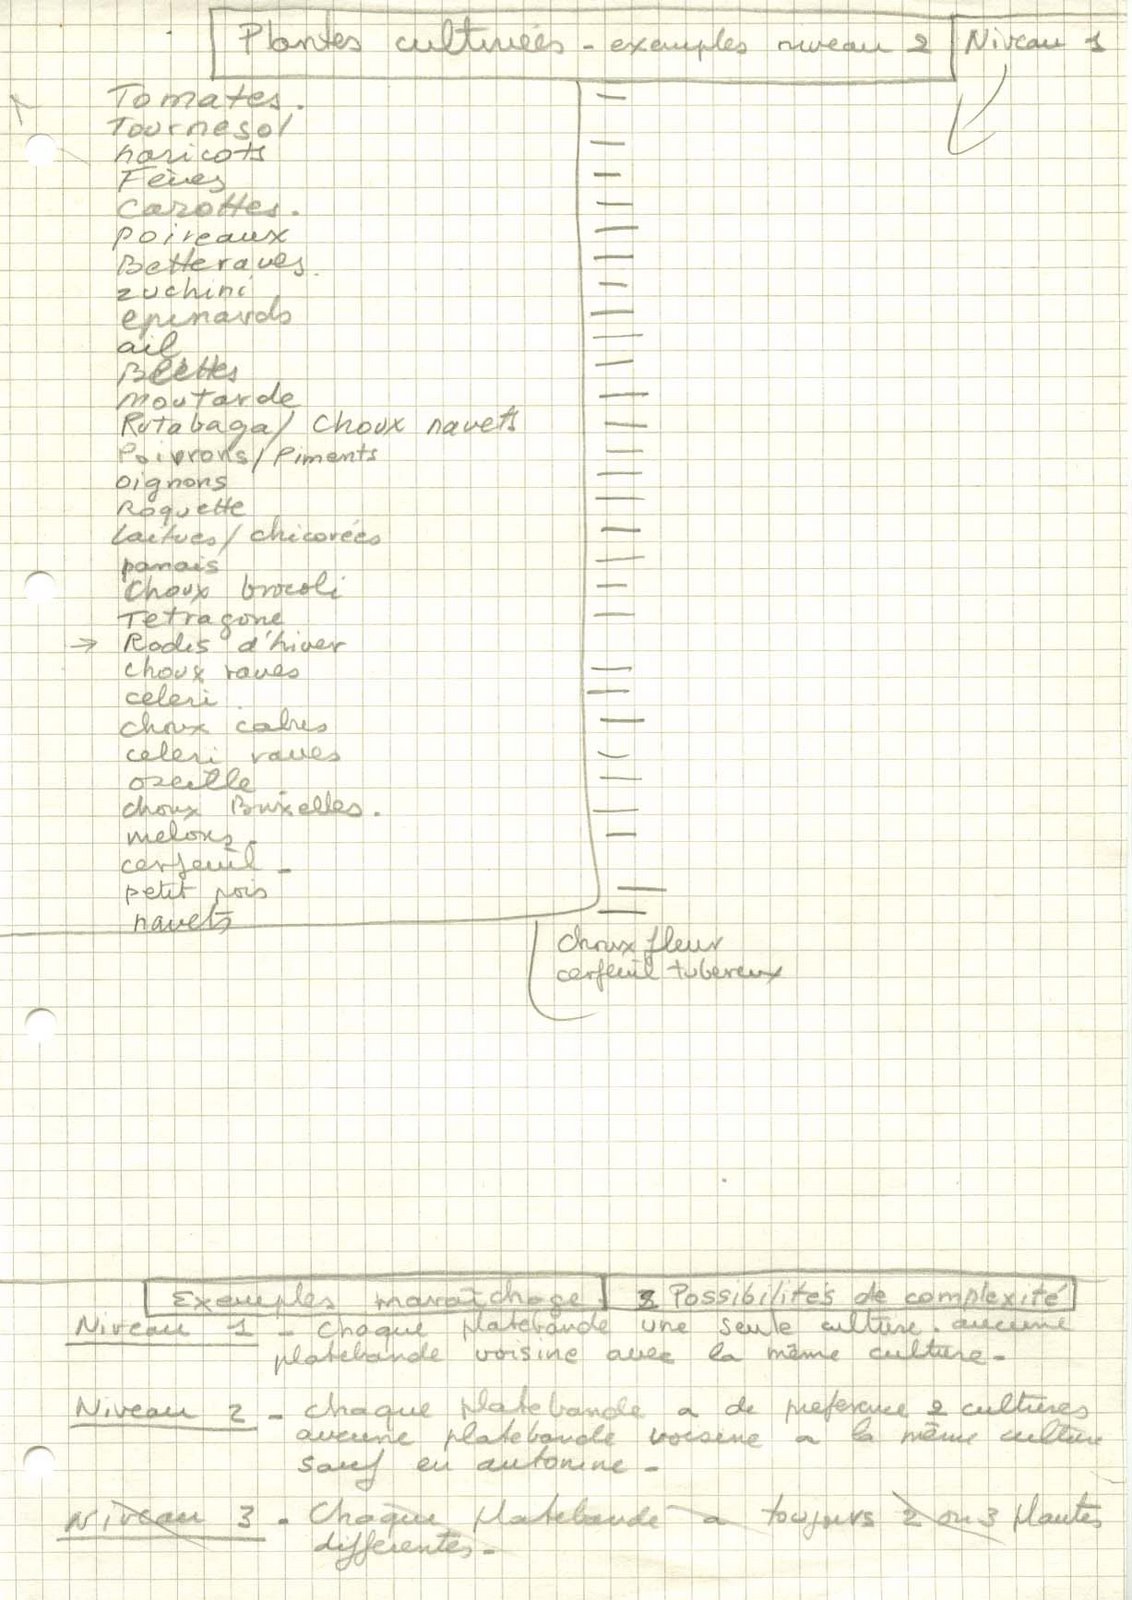 Plantes cultivées - exemples niveau 2 Niveau 1
Tomates.
Tournesol
haricots
Fèves
Carottes.
Poireaux
Betteraves.
zuchini
epinards
ail
Blettes
moutarde
Rutabaga / Choux navets
Poivrons / Piments
oignons
Roquette
Laitues / chicorées
panais
Choux brocoli
Tetragone
→ Radis d'hiver
choux raves
celeri.
choux cabus
celeri raves
oseille
choux Bruxelles.
melons.
cerfeuil -
petit pois
navets
choux fleur
cerfeuil tubereux
Exemples maraîchage. 2 Possibilités de complexité
Niveau 1 - Chaque platebande une seule culture. aucune
platebande voisine avec la même culture -
Niveau 2 - Chaque platebande a de preference 2 cultures
aucune platebande voisine a la même culture
sauf en automne -
Niveau 3 - Chaque platebande a toujours 2 ou 3 plantes
differentes -